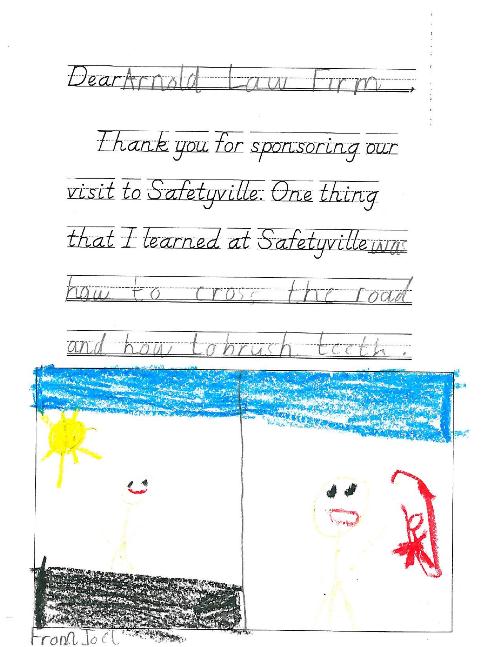 Dear Arnold Law Firm,
Thank you for sponsoring our
visit to Safetyville. One thing
that I learned at Safetyville was
how to cross the road
and how to brush teeth.
From Joel